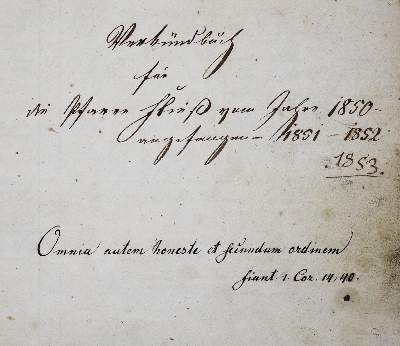 Verkündbuch
für
die Pfarre Fließ vom Jahre 1850-
angefangen - 1851 - 1852
1853.
Omnia autem honeste et secundum ordinem
fiant. 1. Cor. 14, 40.